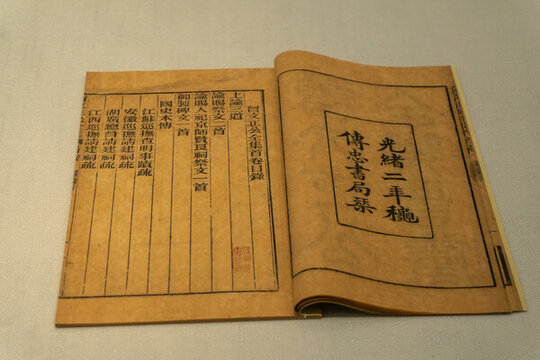 光緒二年穐
傳忠書局栞
曾文正公全集首卷目錄
上諭三道
諭賜祭文二首
諭賜入祀京師賢良祠祭文一首
御製碑文一首
國史本傳
江蘇巡撫查明事蹟疏
安徽巡撫請建祠疏
湖廣總督請建祠疏
江西巡撫請建祠疏